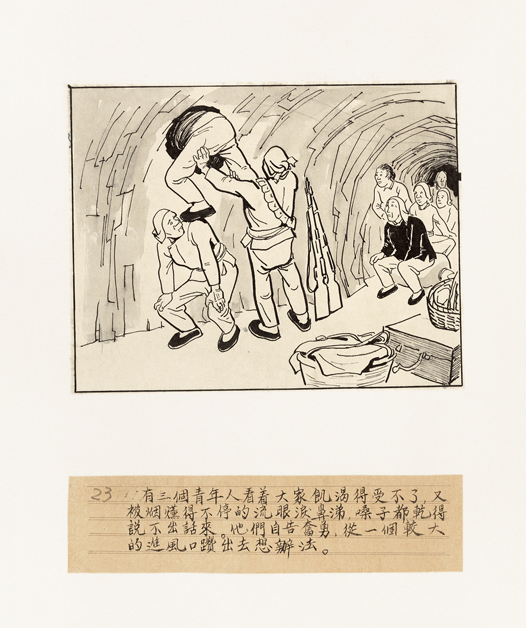 23：有三個青年人看着大家飢渴得受不了，又
被烟燻得不停的流眼淚鼻涕，嗓子都乾得
説不出話來。他們自告奮勇，從一個較大
的進風口鑽出去想辦法。